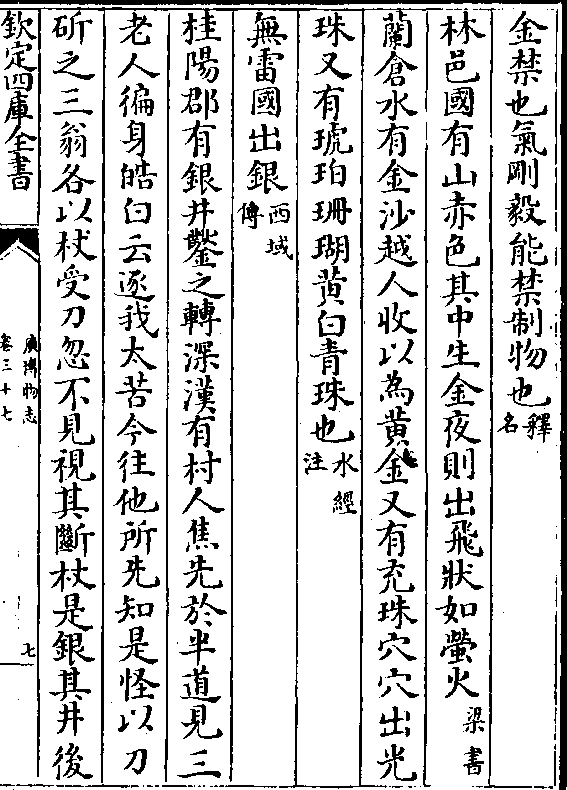 金禁也氣剛毅能禁制物也釋名
林邑國有山赤色其中生金夜則出飛狀如螢火梁書
蘭倉水有金沙越人收以為黄金又有充珠穴穴出光
珠又有琥珀珊瑚黄白青珠也水經注
無雷國出銀西域傳
桂陽郡有銀井鑿之轉深漢有村人焦先於半道見三
老人徧身皓白云逐我太苦今往他所先知是怪以刀
斫之三翁各以杖受刀忽不見視其斷杖是銀其井後
欽定四庫全書
廣博物志
卷三十七
七